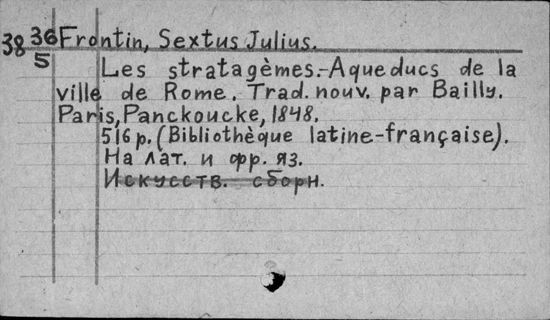 38 36 Frontin, Sextus Julius.
5
Les stratagèmes.-Aqueducs de la
ville de Rome. Trad. nouv. par Bailly.
Paris, Panckoucke, 1848.
516 p. (Bibliothèque latine-française).
На лат. и фр. яз.
Искусств. сборн.